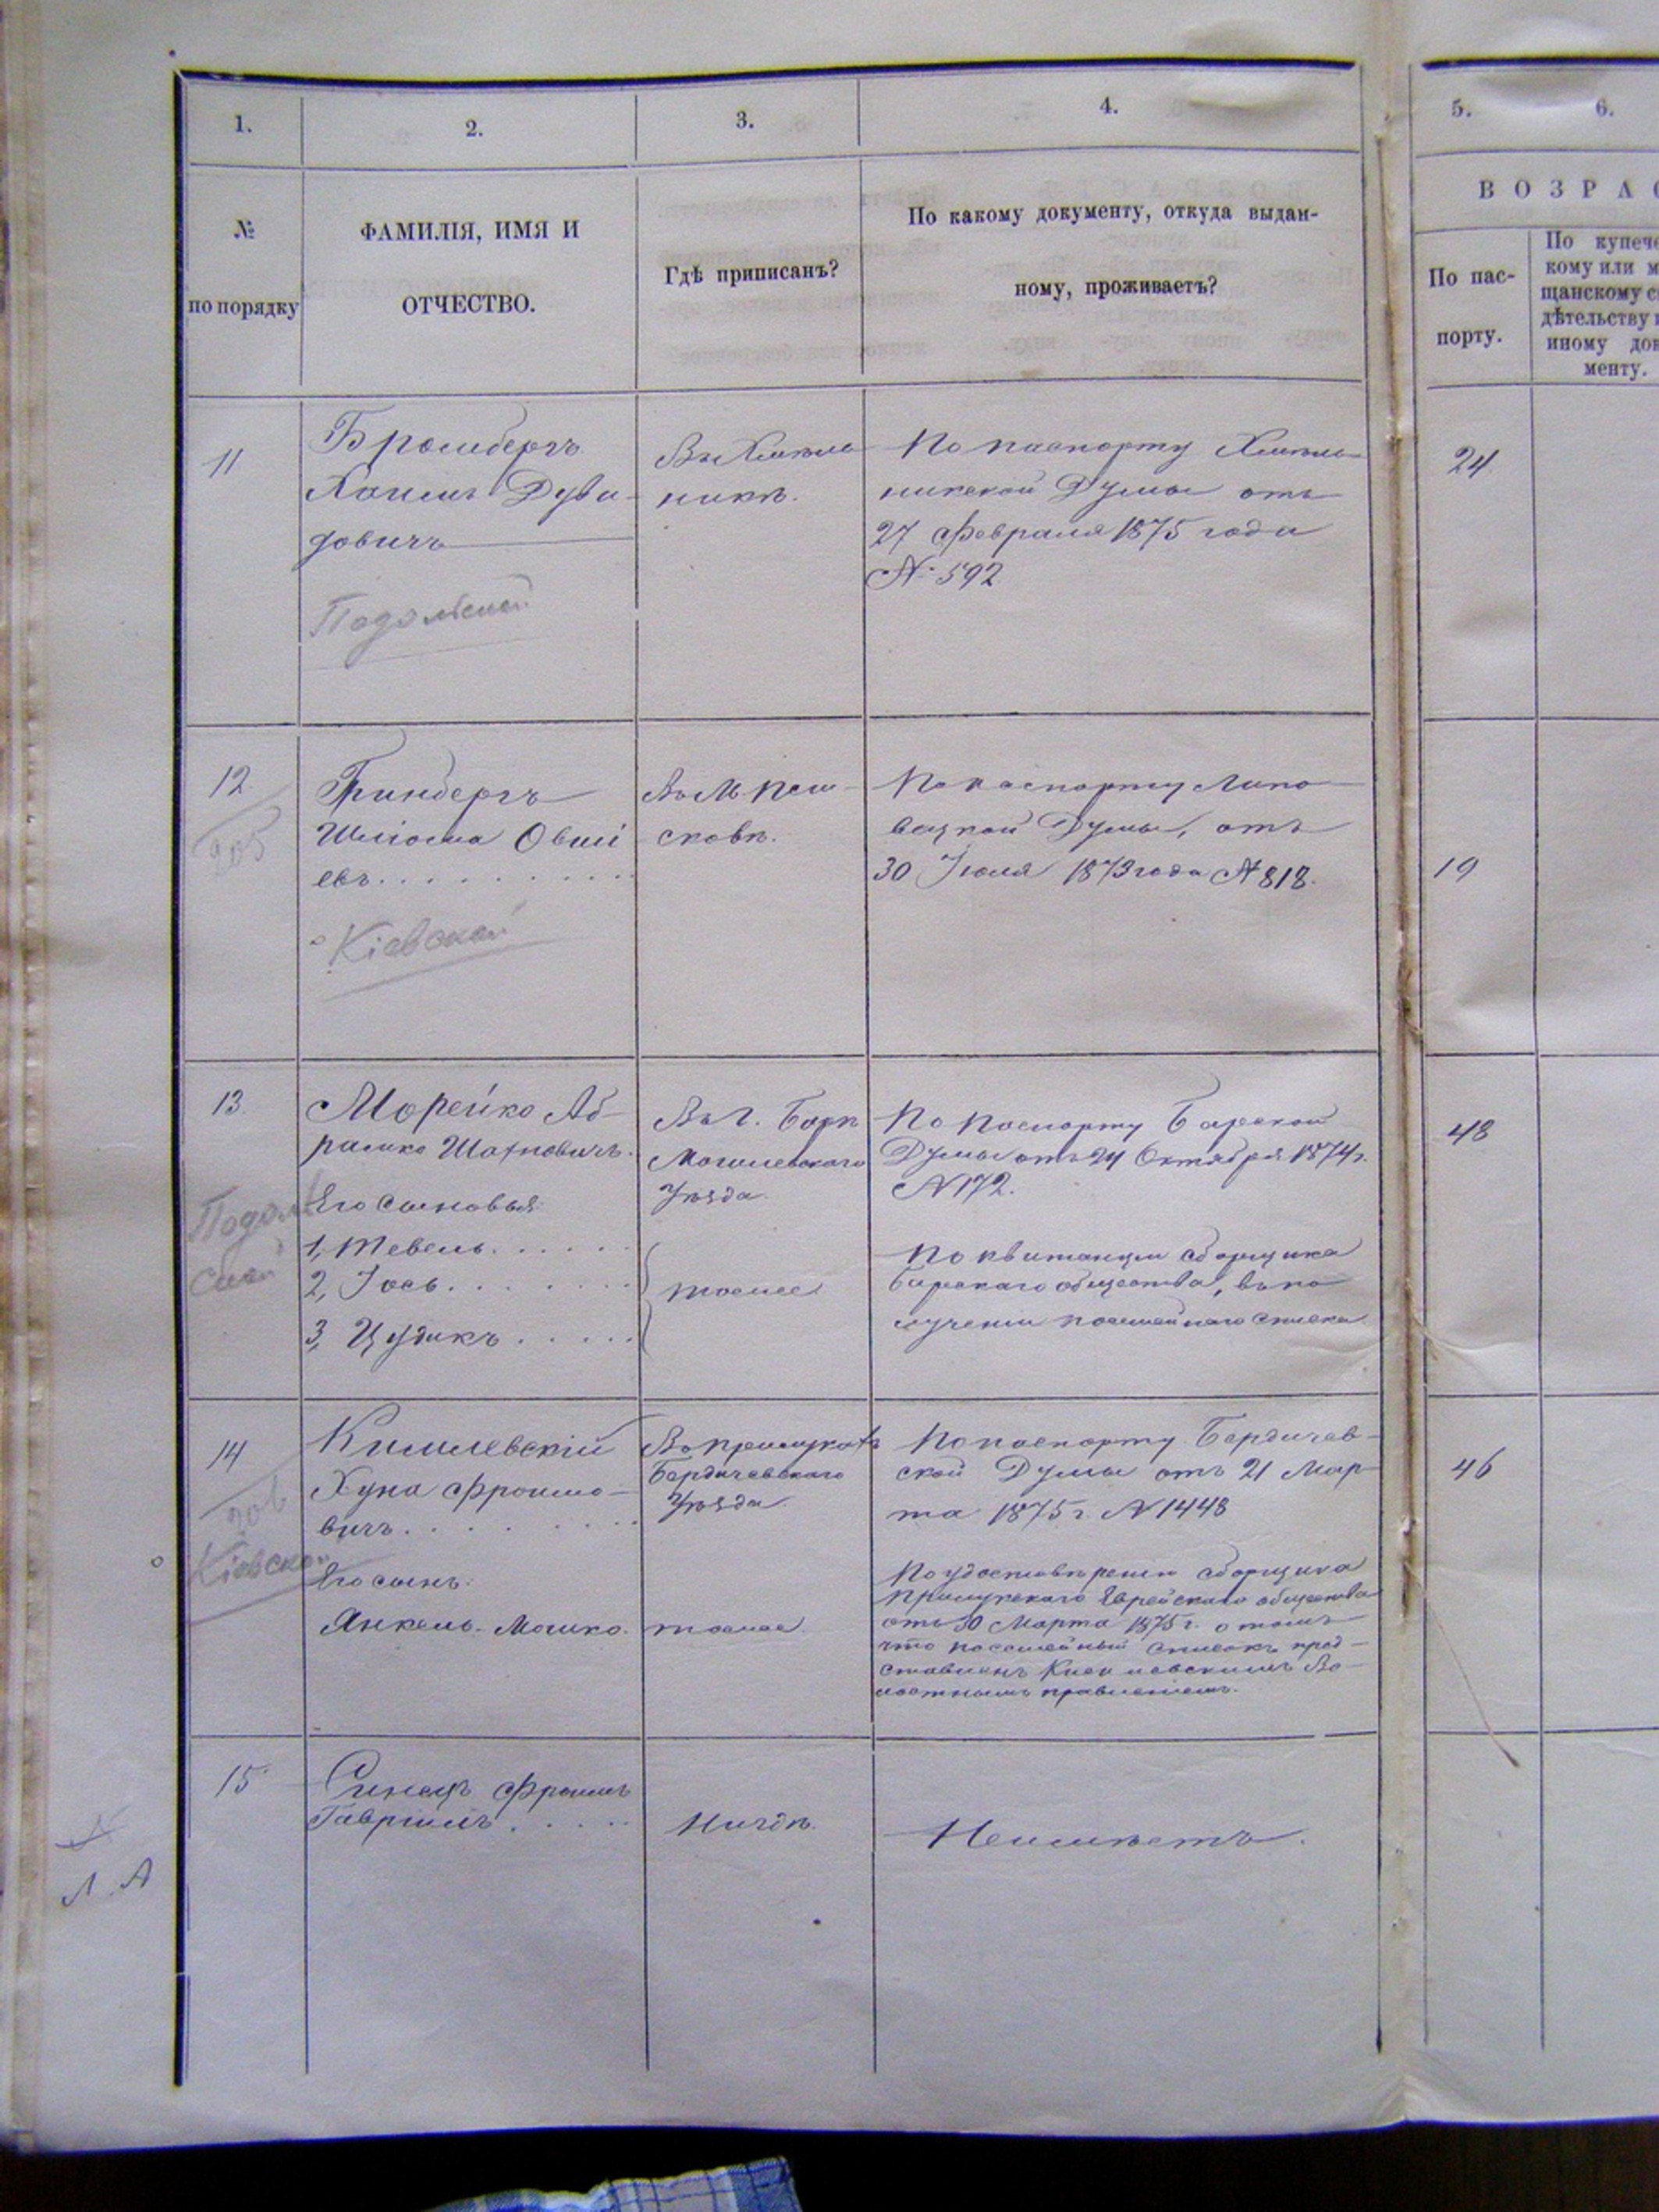 1.
2.
3.
4.
5.
6.
№
по порядку
ФАМИЛІЯ, ИМЯ И
ОТЧЕСТВО.
Гдѣ приписанъ?
По какому документу, откуда выдан-
ному, проживаетъ?
ВОЗРАС
По пас-
порту.
По купече
кому или м
щанскому св
дѣтельству и
иному док
менту.
11
Бромбергъ
Хаимъ Дуви-
довичъ
Подольской
Въ Хмѣль
никѣ.
По паспорту Хмѣль
никской Думы отъ
27 Февраля 1875 года
№ 592
24
12
205
Гринбергъ
Шліома Овші
евъ
Кіевской
Въ М.
сковѣ.
По паспорту Липо
вецкой Думы, отъ
30 Іюля 1873 года № 818.
19
13
Подоль
ской
Морейко Аб
рамко Шатновичъ.
Его сыновья:
1, Тевель
2, Іось
3, Цудикъ
Въ г. Барѣ
Могилевскаго
Уѣзда.
тоже
По паспорту Барской
Думы отъ 24 Октября 1874 г.
№ 172.
По квитанціи сборщика
Барскаго общества, въ по
лученіи посемейнаго списка
48
14
206
Кіевской
Кишлевскій
Хуна Фроимо-
вичъ
Его сынъ:
Янкель-Мошко.
Въ Прилукахъ
Бердичевскаго
Уѣзда.
тоже
По паспорту Бердичев-
ской Думы отъ 21 Мар-
та 1875 г. № 1448
По удостовѣренію сборщика
Прилукскаго Еврейскаго общества
отъ 30 Марта 1875 г. о томъ
что посемейный списокъ пред-
ставленъ Во-
лостнымъ правленіемъ.
46
15
Л. А
Фроимъ
Гавріилъ
Нигдѣ.
Неимѣетъ.